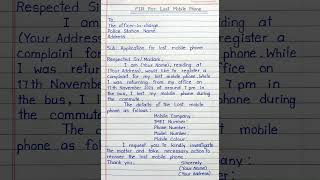 FIR For Lost Mobile Phone
To
The officer-in-charge
Police Station Name
Address
Sub: Application for lost mobile phone
Respected Sir/Madam,
I am (Your Name), residing at
(Your Address), would like to register a
complaint for my lost mobile phone. While
I was returning from my office on
17th November 2021 at around 7 pm in
the bus, I lost my mobile phone during
the commute.
The details of the lost mobile
phone as follows:
Mobile Company:
IMEI Number:
Phone Number:
Model Number:
Mobile Colour:
I request you to kindly investigate
the matter and take necessary action to
recover the lost mobile phone.
Thank you,
Sincerely
(Your Name)
(Your Address)
Respected S
I
(Your Addr
complaint f
I was
17th Novem
the bus, I
the comm
phone as
residing at
register a
phone. While
office on
7 pm in
phone during
mobile